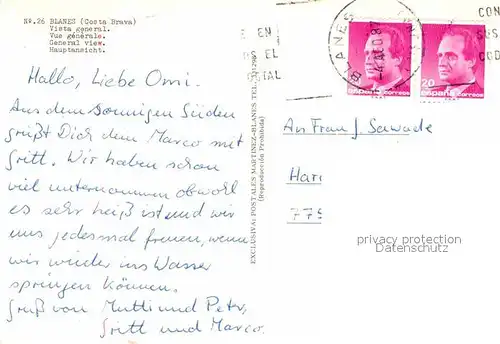 Nr.26 BLANES (Costa Brava)
Vista general.
Vue générale.
General view.
Hauptansicht.
Hallo, Liebe Omi.
Aus dem sonnigen Süden
grüßt Dich dein Marco mit
Gritt. Wir haben schon
viel unternommen obwohl
es sehr heiß ist und wir
uns jedesmal freuen, wenn
wir wieder ins Wasser
springen können.
Gruß von Mutti und Peter,
Gritt und Marco.
EXCLUSIVA: POSTALES MARTINEZ-BLANES TEL.
(Reproducción Prohibida)
EN
EL
BLANES
CON
SUS
COD
20
españa correos
españa correos
An Frau J. Sawade
Hari
775
privacy protection
Datenschutz